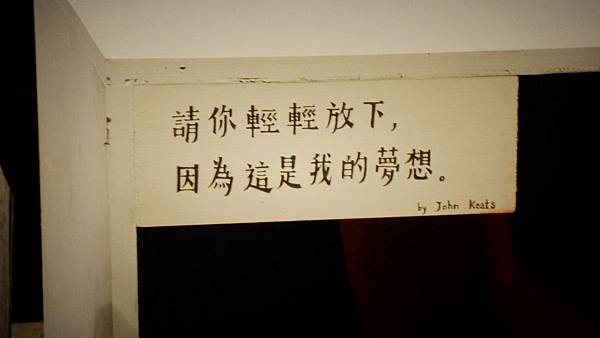 請你輕輕放下,
因為這是我的夢想。
by John Keats